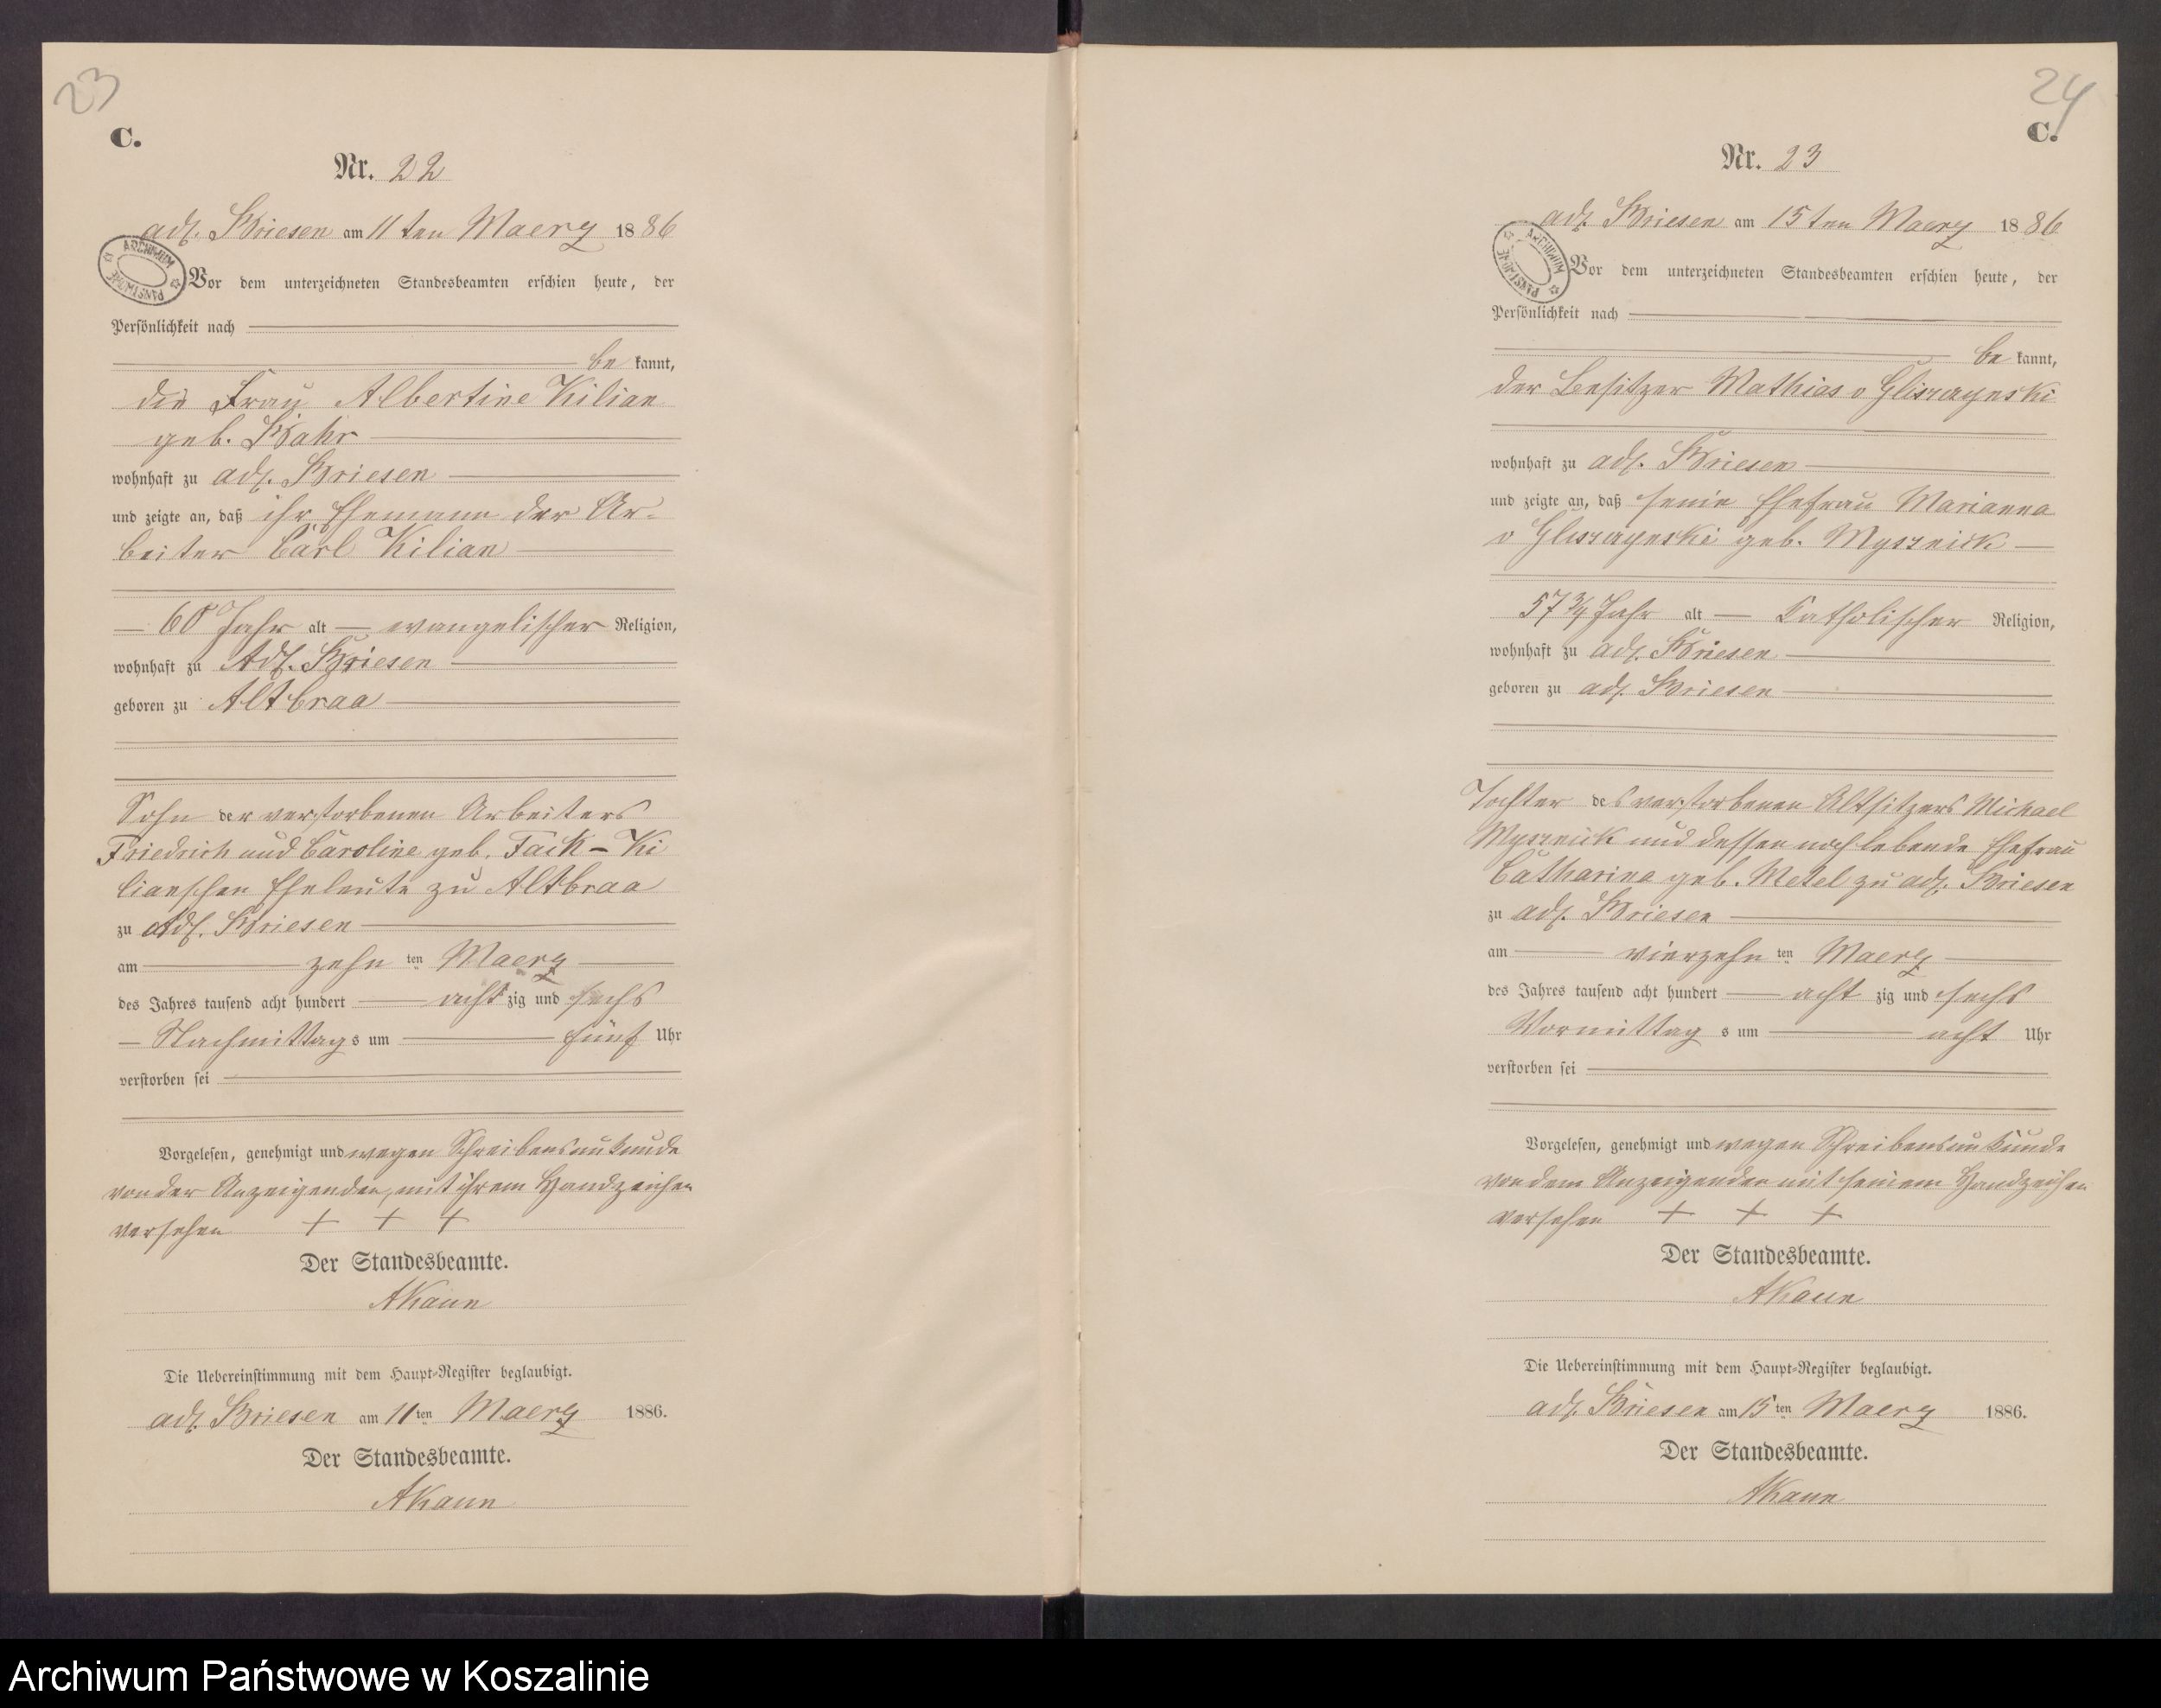 23
C.
Nr. 22
adl. Briesen am 11ten Maerz 1886
ARCHIWUM PAŃSTWOWE
Vor dem unterzeichneten Standesbeamten erschien heute, der
Persönlichkeit nach
be kannt,
die Frau Albertine Kilian
geb. Bahr
wohnhaft zu adl. Briesen
und zeigte an, daß ihr Ehemann der Ar-
beiter Carl Kilian
60 Jahr alt evangelischer Religion,
wohnhaft zu Adl. Briesen
geboren zu Altbraa
Sohn der verstorbenen Arbeiters
Friedrich und Caroline geb. Tack - Ki
lianschen Eheleute zu Altbraa
zu Adl. Briesen
am zehn ten Maerz
des Jahres tausend acht hundert acht zig und sechs
Nachmittags um fünf Uhr
verstorben sei
Vorgelesen, genehmigt und wegen Schreibensunkunde
von der Anzeigenden, mit ihrem Handzeichen
versehen + + +
Der Standesbeamte.
AKaun
Die Uebereinstimmung mit dem Haupt-Register beglaubigt.
adl. Briesen am 11ten Maerz 1886.
Der Standesbeamte.
AKaun
24
C.
Nr. 23
adl. Briesen am 15ten Maerz 1886
ARCHIWUM PAŃSTWOWE
Vor dem unterzeichneten Standesbeamten erschien heute, der
Persönlichkeit nach
be kannt,
der Besitzer Mathias v
wohnhaft zu adl. Briesen
und zeigte an, daß seine Ehefrau Marianna
v geb.
57 3/4 Jahr alt Catholischer Religion,
wohnhaft zu adl. Briesen
geboren zu adl. Briesen
Tochter des verstorbenen Altsitzers Michael
und dessen noch lebende Ehefrau
Catharina geb. zu adl. Briesen
zu adl. Briesen
am vierzehn ten Maerz
des Jahres tausend acht hundert acht zig und sechs
Vormittag s um acht Uhr
verstorben sei
Vorgelesen, genehmigt und wegen Schreibensunkunde
von dem Anzeigenden mit seinem Handzeichen
versehen + + +
Der Standesbeamte.
AKaun
Die Uebereinstimmung mit dem Haupt-Register beglaubigt.
adl. Briesen am 15ten Maerz 1886.
Der Standesbeamte.
AKaun
Archiwum Państwowe w Koszalinie